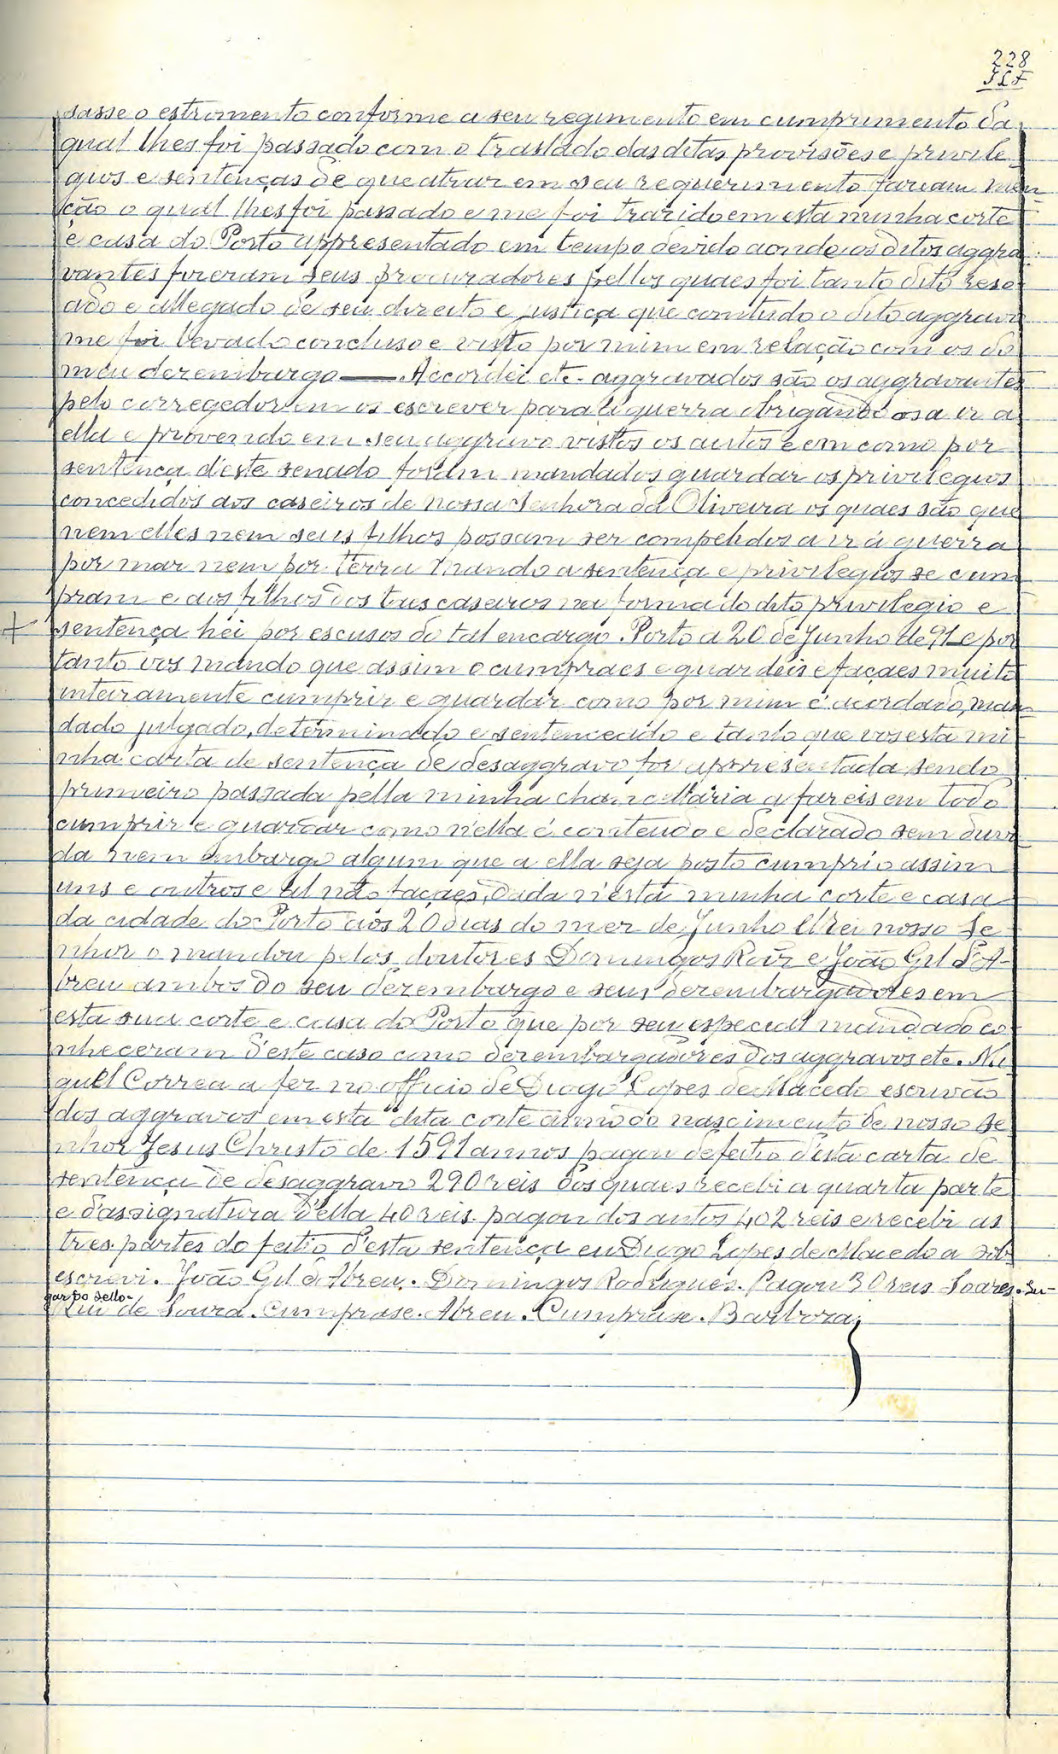 228
sasse o estromento conforme a seu regimento em cumprimento da
qual lhes foi passado com o traslado das ditas provisões e privile-
gios e sentenças de que atraz em seu requerimento faziam men-
ção o qual lhes foi passado e me foi trazido em esta minha corte
e casa do Porto appresentado em tempo devido aonde os ditos aggra-
vantes fizeram seus procuradores pellos quaes foi tanto dito reso-
ado e allegado de seu direito e justiça que comtudo o dito aggravo
me foi levado concluso e visto por mim em relação com os do
meu dezembargo — Accordei etc. aggravados são os aggravantes
pelo corregedor em os escrever para a guerra obrigando os a ir a
ella e provendo em seu aggravo vistos os autos e em como por
sentença d'este senado foram mandados guardar os privilegios
concedidos aos caseiros de nossa Senhora da Oliveira os quaes são que
nem elles nem seus filhos possam ser compelidos a ir á guerra
por mar nem por terra mando a sentença e privilegios se cum-
pram e aos filhos dos taes caseiros na forma do dito privilegio e
+ sentença hei por escusos do tal encargo. Porto a 20 de Junho de 91 e por
tanto vos mando que assim o cumpraes e guardeis e façaes muito
inteiramente cumprir e guardar como por mim é acordado, man-
dado julgado, determinado e sentenceado e tanto que vos esta mi-
nha carta de sentença de desaggravo for appresentada sendo
primeiro passada pella minha chancellaria a fareis em todo
cumprir e guardar como n'ella é conteudo e declarado sem duvi-
da nem embargo algum que a ella seja posto cumprio assim
uns e outros e al não façaes, Dada n'esta minha corte e casa
da cidade do Porto aos 20 dias do mez de Junho El'rei nosso Se-
nhor o mandou pelos doutores Domingos Roiz e João Gil d'A-
breu ambos do seu dezembargo e seus dezembargadores em
esta sua corte e casa do Porto que por seu especial mandado co-
nheceram d'este caso como dezembargadores dos aggravos etc. Mi-
guel Correa a fez no officio de Diogo Lopes de Macedo escrivão
dos aggravos em esta dita corte anno do nascimento de nosso Se-
nhor Jesus Christo de 1591 annos pagou de feitio d'esta carta de
sentença de desaggravo 290 reis dos quaes recebi a quarta parte
e d'assignatura d'ella 40 reis pagou dos autos 402 reis e recebi as
tres partes do feitio d'esta sentença eu Diogo Lopes de Macedo a sob-
escrevi. João Gil d'Abreu. Domingos Rodrigues. Pagou 30 reis Soares. Lu-
gar do sello-
Rui de Souza. Cumprase. Abreu. Cumprase. Barboza,